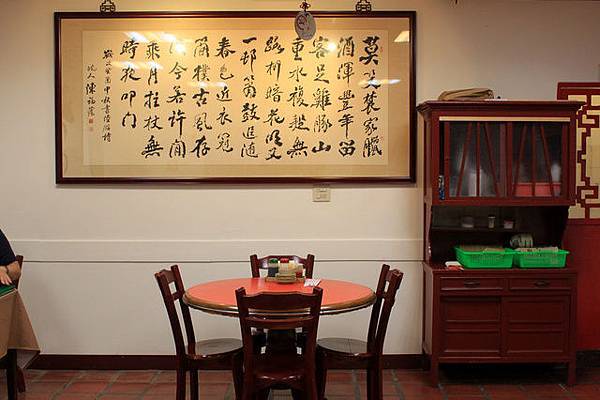 莫笑農家臘
酒渾豐年留
客足雞豚山
重水複疑無
路柳暗花明又
一邨簫鼓追隨
春社近衣冠
簡樸古風存
從今若許閒
乘月拄杖無
時夜叩門
歲次癸酉中秋書陸游詩
人陳福